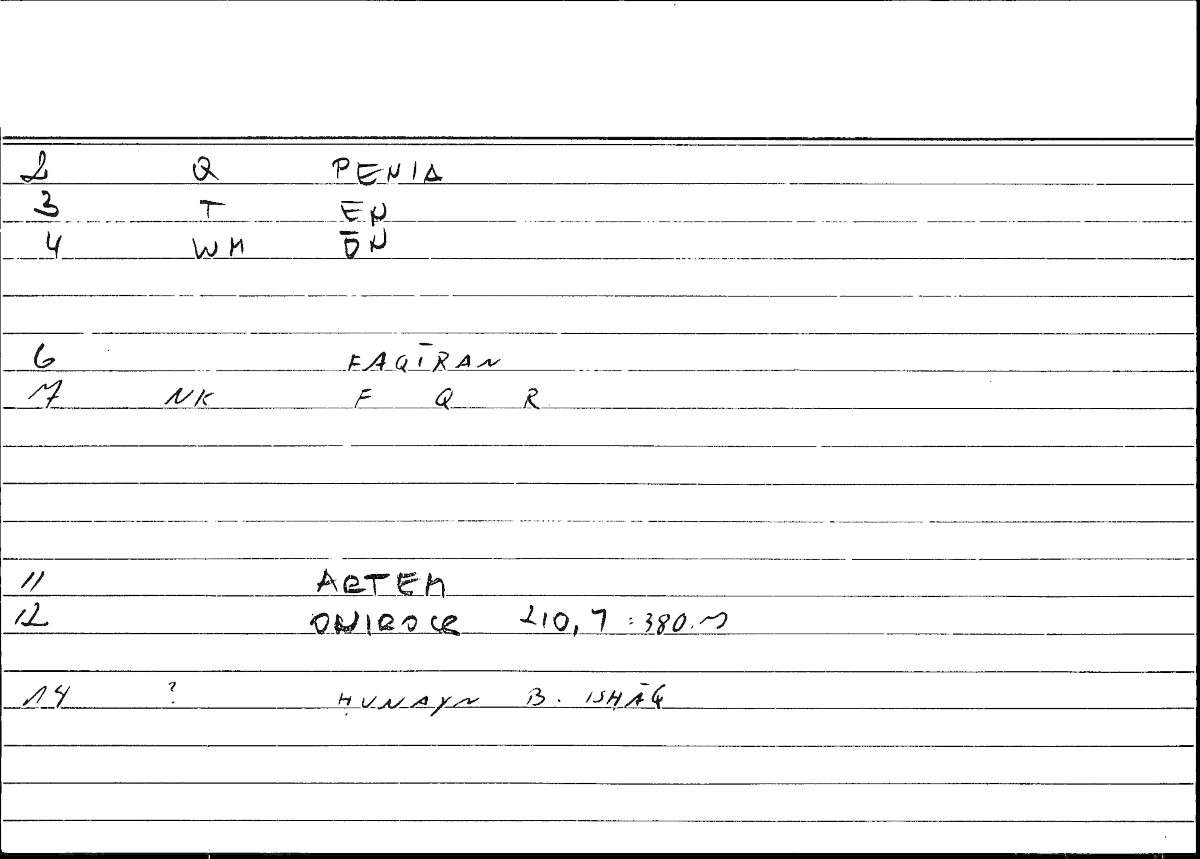 2 Q PENIA
3 T ĒN
4 WM ŌN
6 FAQĪRAN
7 NK F Q R
11 ARTEM
12 ONIROCR 210,7 : 380.
14 ? ḤUNAYN B. ISḤĀQ